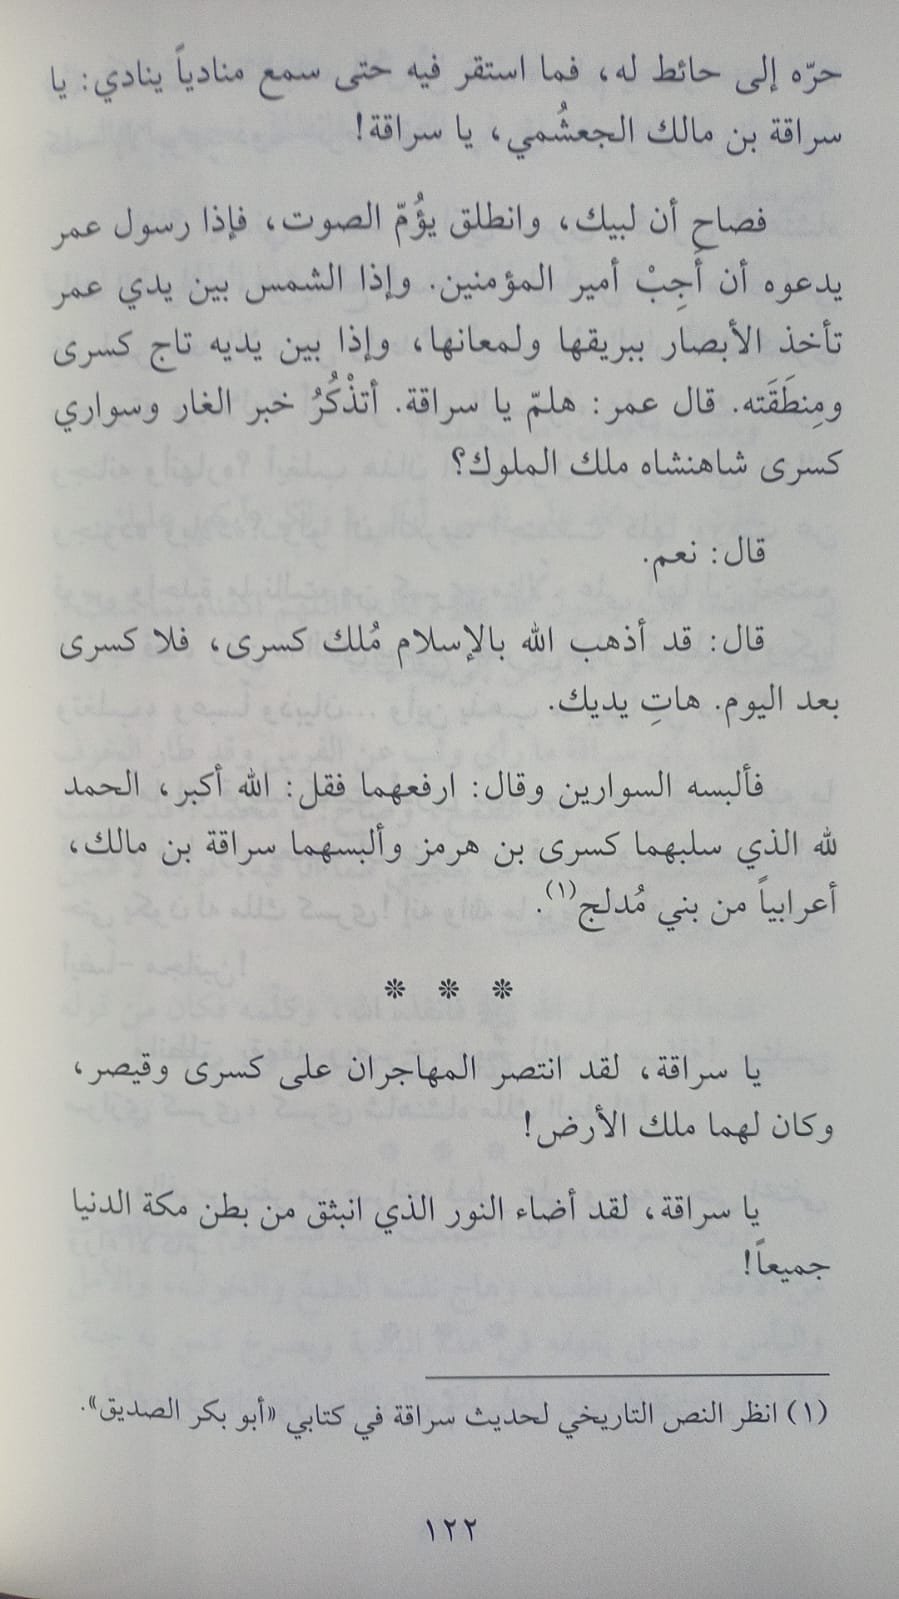 حرّه إلى حائط له، فما استقر فيه حتى سمع منادياً ينادي: يا
سراقة بن مالك الجعشُمي، يا سراقة!
فصاح أن لبيك، وانطلق يؤُمّ الصوت، فإذا رسول عمر
يدعوه أن أَجِبْ أمير المؤمنين. وإذا الشمس بين يدي عمر
تأخذ الأبصار ببريقها ولمعانها، وإذا بين يديه تاج كسرى
ومِنطَقَته. قال عمر: هلمّ يا سراقة. أتذْكُرُ خبر الغار وسواري
كسرى شاهنشاه ملك الملوك؟
قال: نعم.
قال: قد أذهب الله بالإسلام مُلك كسرى، فلا كسرى
بعد اليوم. هاتِ يديك.
فألبسه السوارين وقال: ارفعهما فقل: الله أكبر، الحمد
لله الذي سلبهما كسرى بن هرمز وألبسهما سراقة بن مالك،
أعرابياً من بني مُدلج(١).
* * *
يا سراقة، لقد انتصر المهاجران على كسرى وقيصر،
وكان لهما ملك الأرض!
يا سراقة، لقد أضاء النور الذي انبثق من بطن مكة الدنيا
جميعاً!
(١) انظر النص التاريخي لحديث سراقة في كتابي «أبو بكر الصديق».
١٢٢